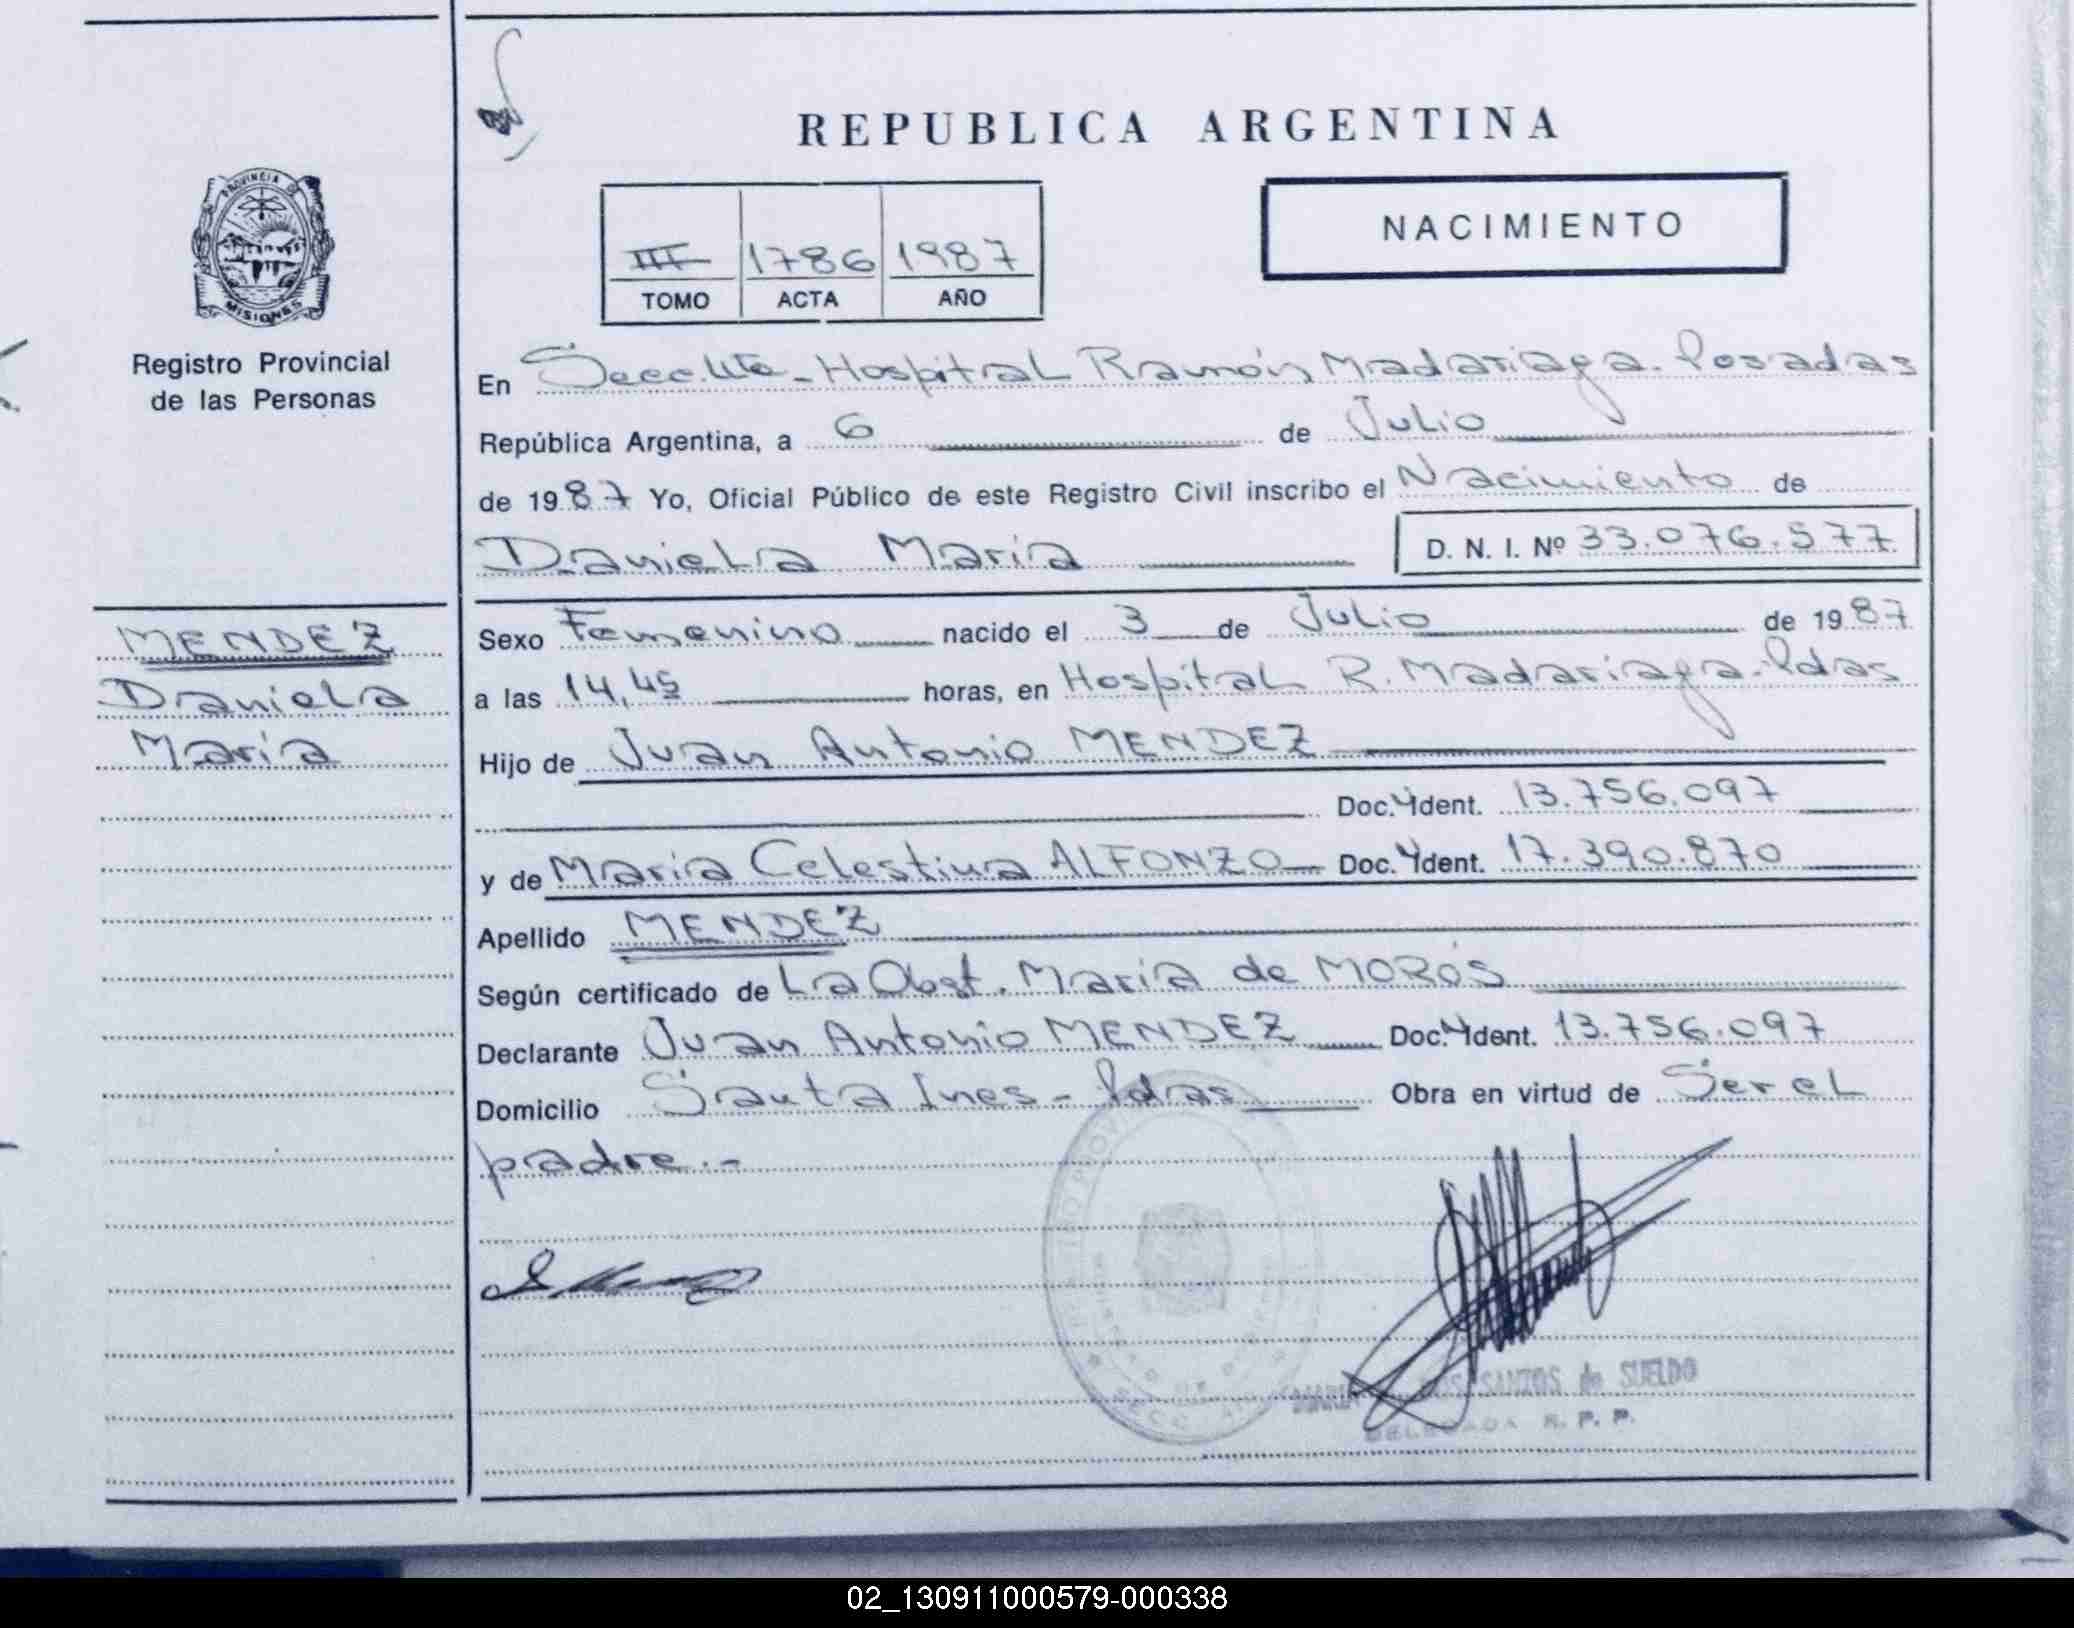 REPUBLICA ARGENTINA
NACIMIENTO
III 1786 1987
TOMO ACTA AÑO
PROVINCIA DE
MISIONES
Registro Provincial
de las Personas
En Secc. Hospital Ramón Madariaga. Posadas
República Argentina, a 6 de Julio
de 1987 Yo, Oficial Público de este Registro Civil inscribo el Nacimiento de
Daniela Maria
D. N. I. Nº 33.076.577
MENDEZ
Daniela
Maria
Sexo Femenino nacido el 3 de Julio de 1987
a las 14,45 horas, en Hospital R. Madariaga-Pdas
Hijo de Juan Antonio MENDEZ
Doc. Ydent. 13.756.097
y de Maria Celestina ALFONZO Doc. Ydent. 17.390.870
Apellido MENDEZ
Según certificado de La Obst. Maria de MOROS
Declarante Juan Antonio MENDEZ Doc. Ydent. 13.756.097
Domicilio Santa Ines - Pdas Obra en virtud de Ser el
padre.-
MARIA DOS SANTOS de SUELDO
DELEGADA R. P. P.
02_130911000579-000338